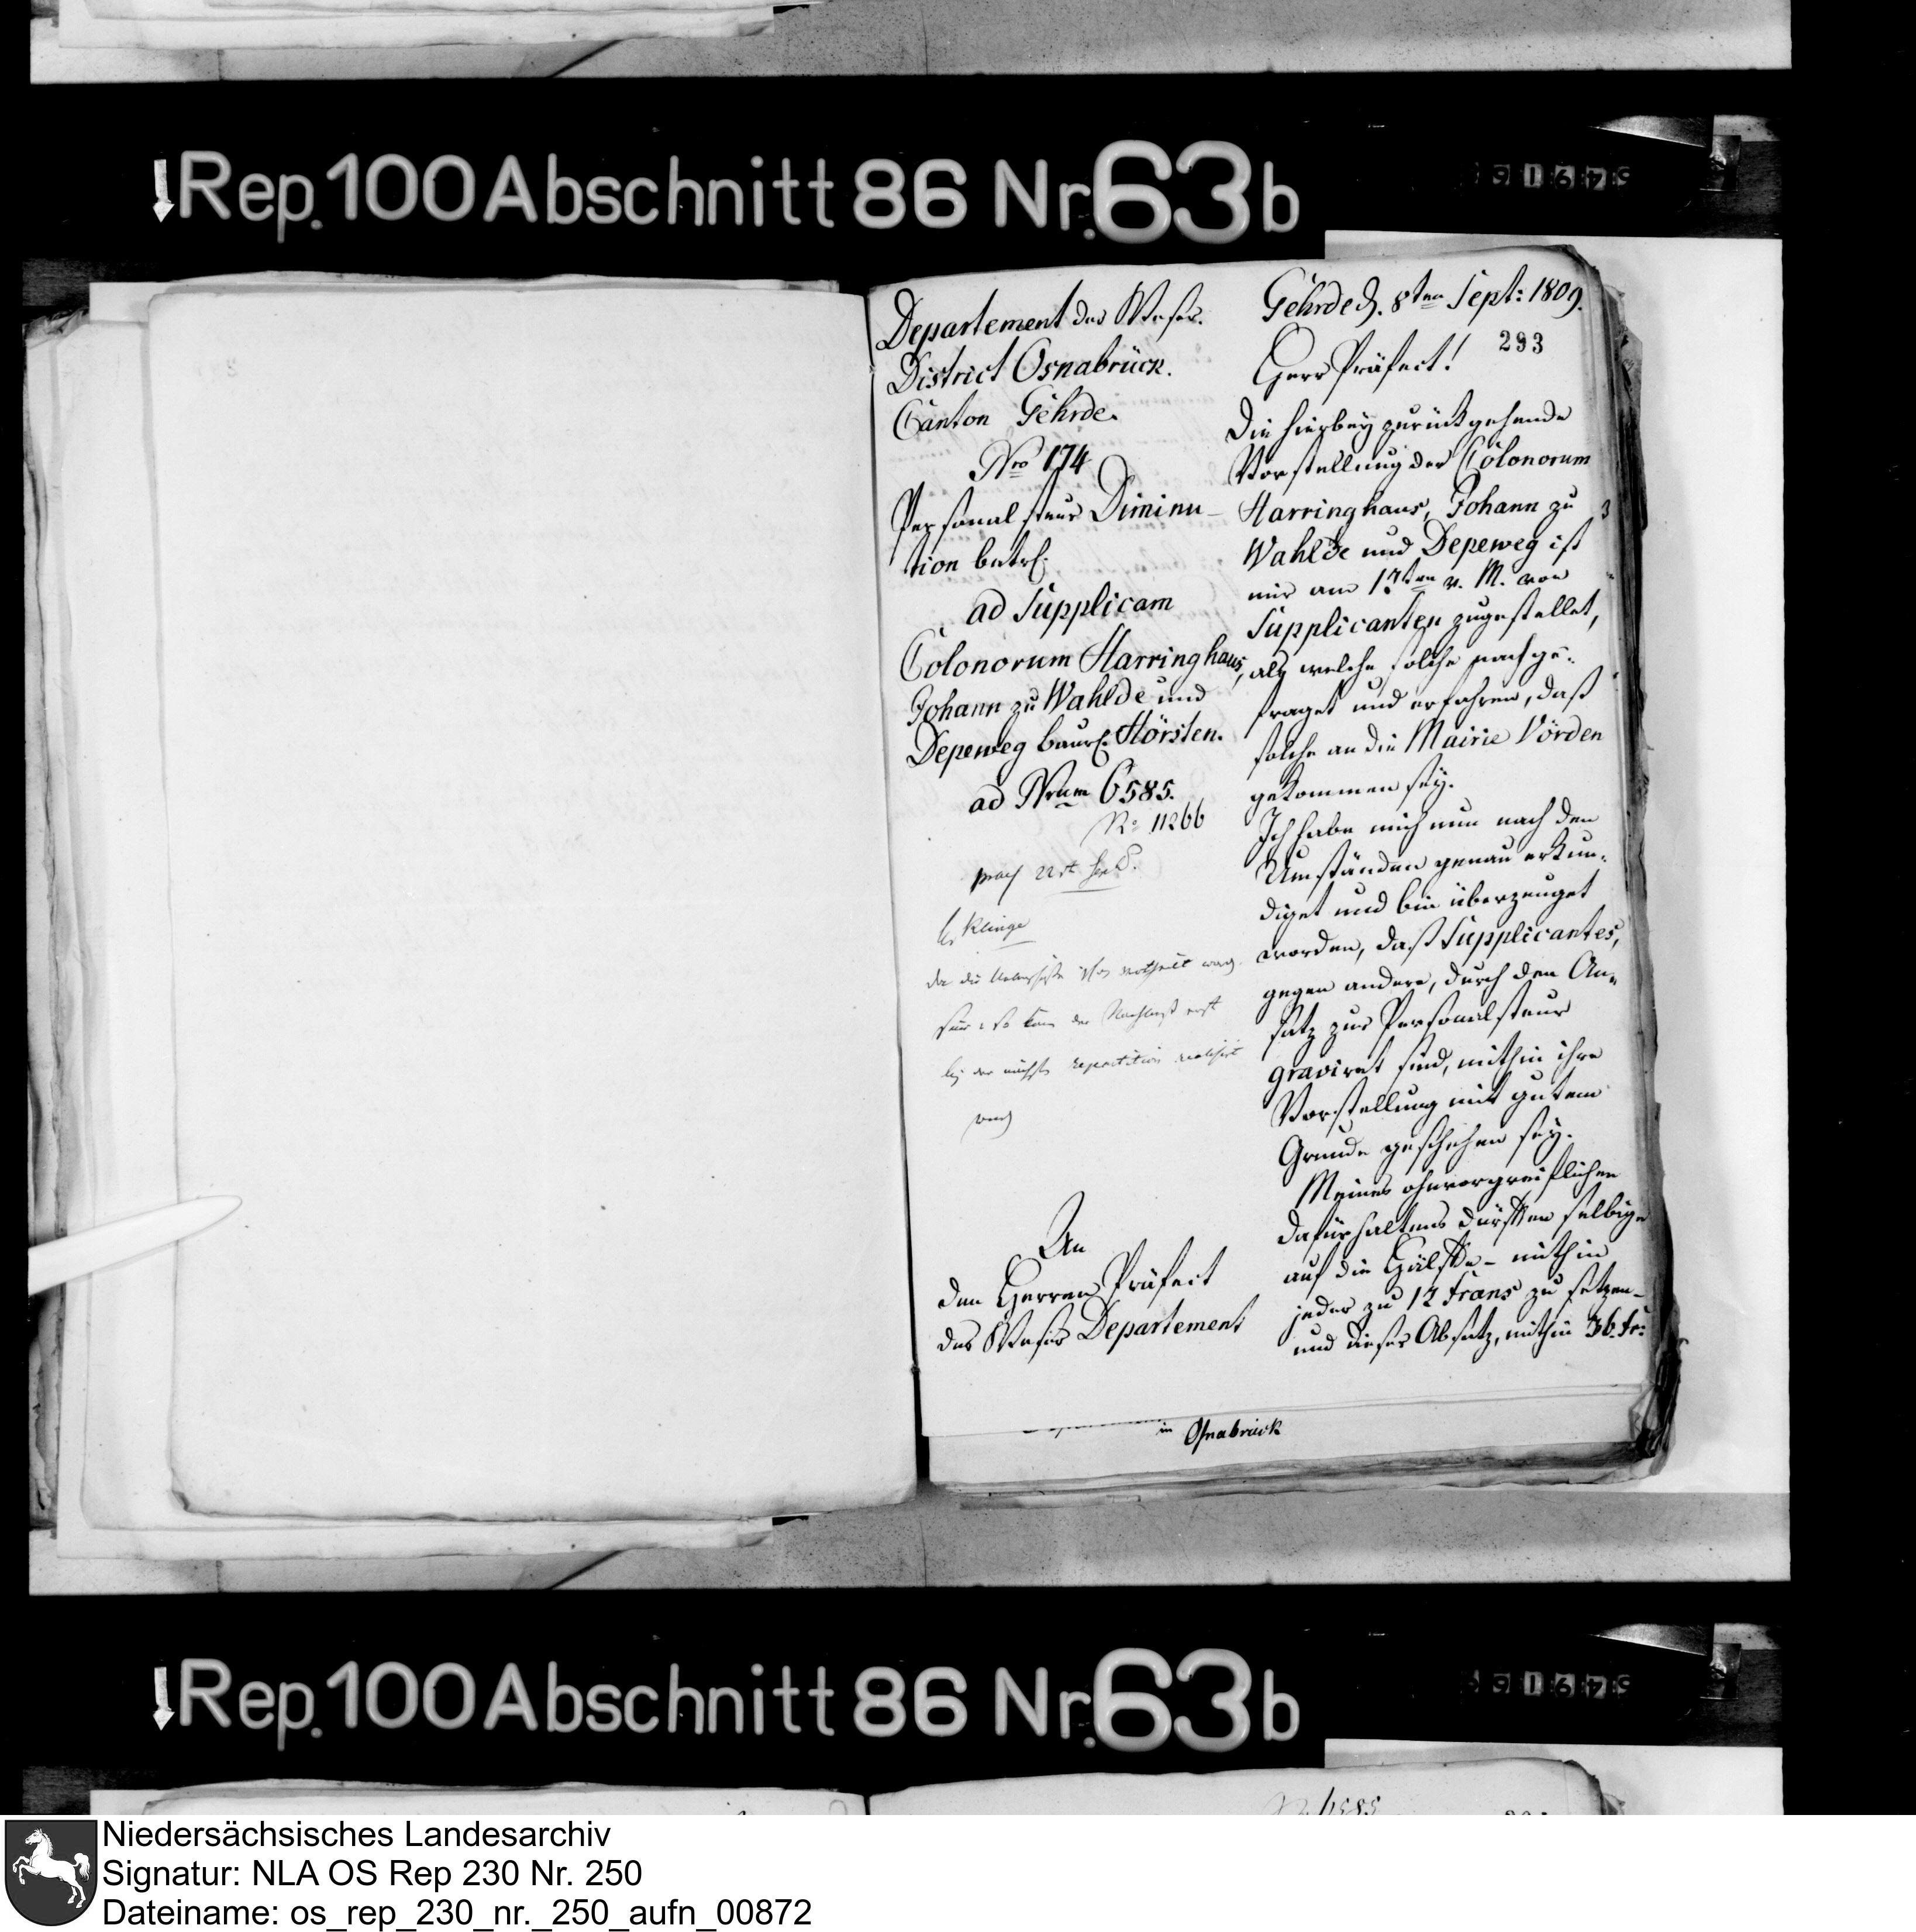 Rep. 100 Abschnitt 86 Nr. 63b
Departement der Weser.
District Osnabrück.
Canton Gehrde.
Nro 174
Personalsteur Diminu-
tion betr.
ad Supplicam
Colonorum Harringhaus,
Johann zu Wahlde und
Depeweg baurs. Hörsten.
ad Nrum 6585.
No 11266
praes 22st Sept.
Klinge
da die
so kann der Nachlaß erst
bey der nächsten repartition realisirt
werd
An
den Herren Präfect
des Weser Departement
in Osnabrück
Gehrde d. 8ten Sept: 1809.
293
Herr Präfect!
Die hierbey zurückgehende
Vorstellung der Colonorum
Harringhaus, Johann zu
Wahlde und Depeweg ist
mir am 17ten v. M. von
Supplicanten zugestellet,
als welche solche nachge-
fraget und erfahren, daß
solche an die Mairie Vörden
gekommen sey.
Ich habe mich nun nach den
Umständen genau erkun-
diget und bin überzeuget
worden, daß Supplicantes,
gegen andere, durch den An-
satz zur Personalsteur
graviret sind, mithin ihre
Vorstellung mit gutem
Grunde geschehen sey.
Meines ohnvorgreiflichen
dafürhaltens dürften selbige
auf die Hälfte - mithin
jeder zu 12 frans zu setzen -
und dieser Absatz, mithin 36. fr:
Rep. 100 Abschnitt 86 Nr. 63b
6585
Niedersächsisches Landesarchiv
Signatur: NLA OS Rep 230 Nr. 250
Dateiname: os_rep_230_nr._250_aufn_00872